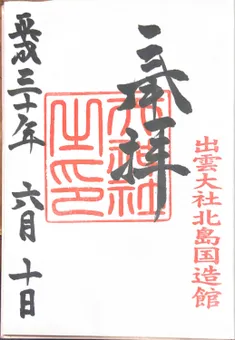 出雲大社北島国造館
奉拝
之印
平成三十年 六月 十日